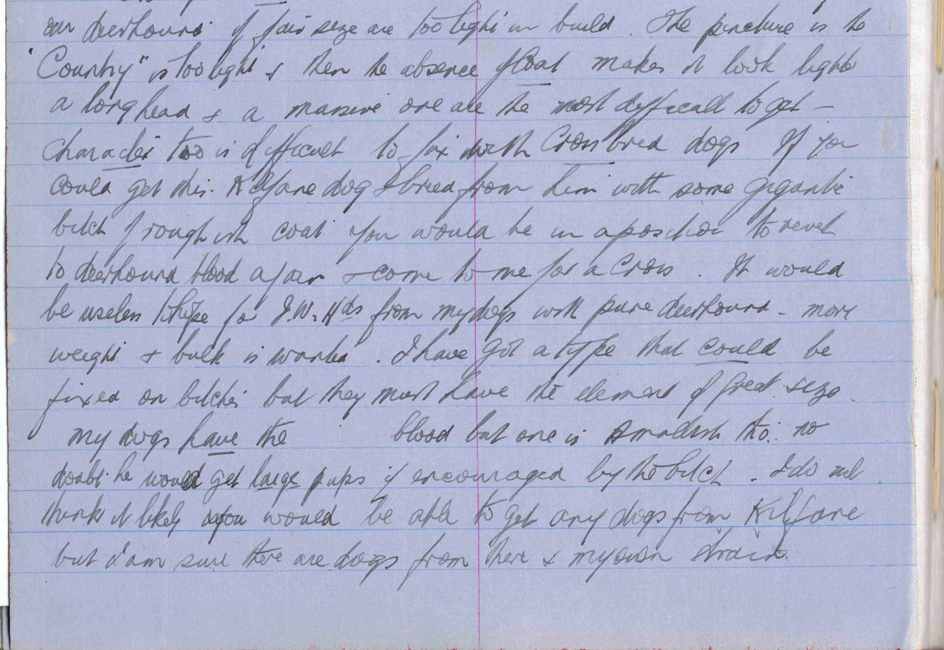 our deerhounds of fair size are too light in build. The picture is the
"Country" is too light & then the absence of coat makes it look light
a long head & a massive one are the most difficult to get –
character too is difficult to fix with Crossbred dogs If you
could get this Kilfane dog & breed from him with some gigantic
bitch of roughish coat you would be in a position to revert
to deerhound blood again & come to me for a Cross. It would
be useless to hope for I.W. Hds from my dogs with pure deerhound – more
weight & bulk is wanted. I have got a type that could be
fixed on bitches but they must have the element of Great size.
my dogs have the blood but one is smallish tho' no
doubt he would get large pups if encouraged by the bitch. I do not
think it likely you would be able to get any dogs from Kilfane
but I am sure there are dogs from there & my own strain.